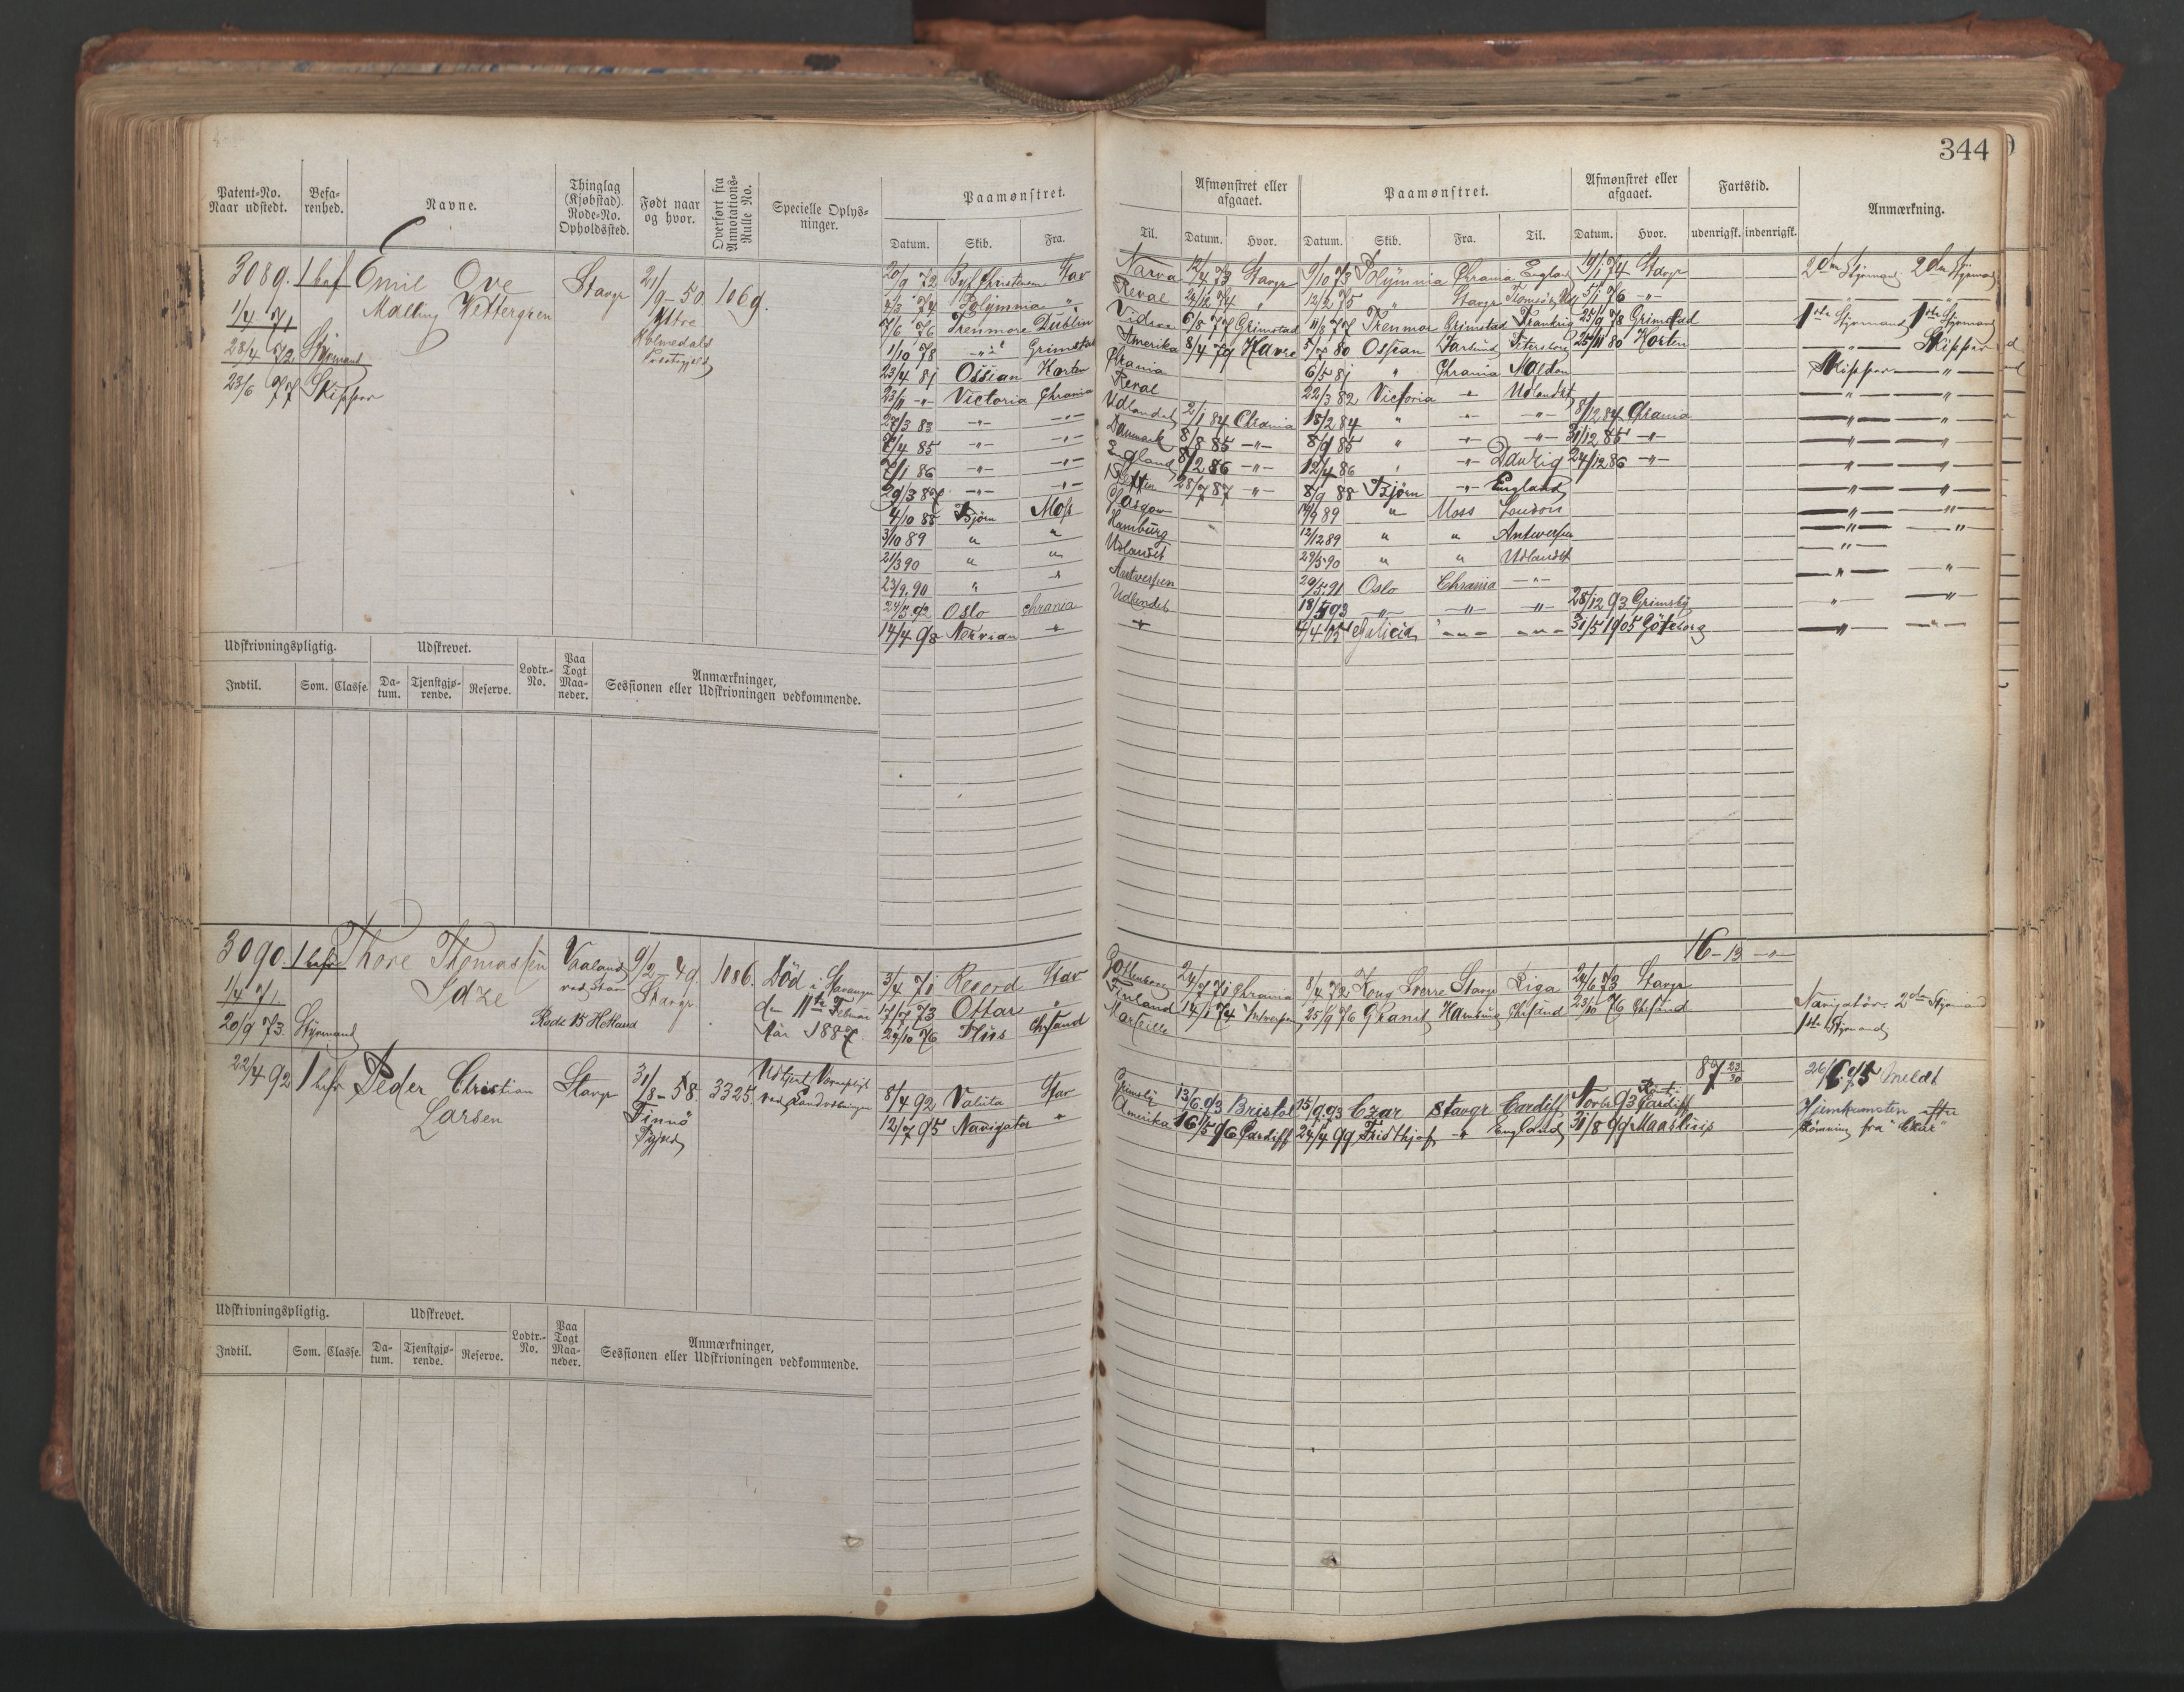 344
Patent-No. Naar udstedt.
Befa-renhed.
Navne.
Thinglag (Kjøbstad). Rode-No. Opholdssted.
Født naar og hvor.
Overført fra Annotations-Rulle No.
Specielle Oplys-ninger.
Paamønstret.
Datum. Skib. Fra. Til.
Afmønstret eller afgaaet.
Datum. Hvor.
Paamønstret.
Datum. Skib. Fra. Til.
Afmønstret eller afgaaet.
Datum. Hvor.
Fartstid.
udenrigsk. indenrigsk.
Anmærkning.
3089. 1 bef Emil Ove Stavgr 21/9-50. 1069.
Malling Wettergren
1/4 71
28/4 72 Styrmand
23/6 77 Skipper
Ytre Holmedals
20/9 72 Stav Narva 12/4 73 Stavgr 9/10 73 Polymnia Chrania England 19/1 74 Stavgr 2den Styrmand 2den Styrmand
74 Polymnia " Reval 24/12 74 " 12/2 75 " Stavgr 5/1 76 -"-
7/6 76 Trenmore Dublin 6/8 77 Grimstad 11/8 77 Trenmor Grimstad Frankrig 25/9 78 Grimstad 1ste Styrmand 1ste Styrmand
1/10 78 -"- Grimstad Amerika 8/4 79 Havre 80 Ossian Petersborg 25/11 80 Horten -"- Skipper
23/4 81 Ossian Horten Chrania 6/5 81 " Chrania Maldon Skipper -"-
23/11 -"- Victoria Chrania Reval 22/3 82 Victoria -"- Udlandet -"- -"-
27/3 83 -"- -"- Udlandet 2/1 84 Chrania 18/2 84 " -"- -"- 8/12 84 Chrania -"- -"-
7/4 85 -"- -"- Danmark 8/8 85 -"- 8/9 85 " -"- -"- 31/12 85 -"- -"- -"-
7/1 86 -"- -"- England 8/2 86 -"- 12/4 86 " -"- Danzig 24/12 86 -"- -"- -"-
29/3 87 -"- -"- 28/7 87 -"- 8/9 88 Bjørn -"- England -"- -"-
4/10 88 Bjørn Moss Glasgow 89 " Moss London -"- -"-
3/10 89 " " Hamburg 12/12 89 " " Antwerpen -"- -"-
21/3 90 " " Udlandet 29/5 90 " " Udlandet -"-
23/9. 90 " " Antverpen 20/5. 91 Oslo Chrania -"- -"- "
92 Oslo Chrania Udlandet 93 -"- -"- -"- 28/12 93 Grimsby " -"-
14/4 98 Norvian -"- -"- Galicia -"- -"- 31/5 1905 Göteborg -"- -"-
Udskrivningspligtig.
Udskrevet.
Lodtr.-No.
Paa Togt Maa-neder.
Anmærkninger, Sessionen eller Udskrivningen vedkommende.
Indtil. Som. Classe. Da-tum. Tjenstgjø-rende. Reserve.
16-13 -"-
3090. 1 befr Thore Thomassen Vaaland 9/2-49. 1086. Död i Stavanger 3/4 71 Record Stav Gothenborg 24/7 71 Chrania 8/4 72 Kong Sverre Stavgr Riga 24/6 73 Stavgr
1/4 71 Idze ved Stav Stavgr den 11te Februar 17/7 73 Ottar " Finland 14/1 74 Antwerpen 25/9 76 Granit Hamburg Chrsund 23/10 76 Chrsand Navigatör. 2den Styrmand
20/9 73. Styrmand Rode 15 Hetland Aar 1887. 24/10 76 Flüs Chrsand Marseille 1ste Styrmand
87 23/30
22/4 92 1 befr Peder Christian Stavgr 31/8-58. 3325. Udtjent Værnepligt 8/4 92 Valuta Stav Grimsby 13/6 93 Bristol 15/9 93 Czar Stavgr Cardiff Novbr 93 Rømt i Cardiff 95 meldt
Larsen Finnö 12/7 95 Navigator " Amerika 16/5 96 Cardiff 24/4 99 Fridthjof -"- England 31/8 99 Hjemkomsten efter
Pgjeld Rømning fra "Czar"
Udskrivningspligtig.
Udskrevet.
Lodtr.-No.
Paa Togt Maa-neder.
Anmærkninger, Sessionen eller Udskrivningen vedkommende.
Indtil. Som. Classe. Da-tum. Tjenstgjø-rende. Reserve.